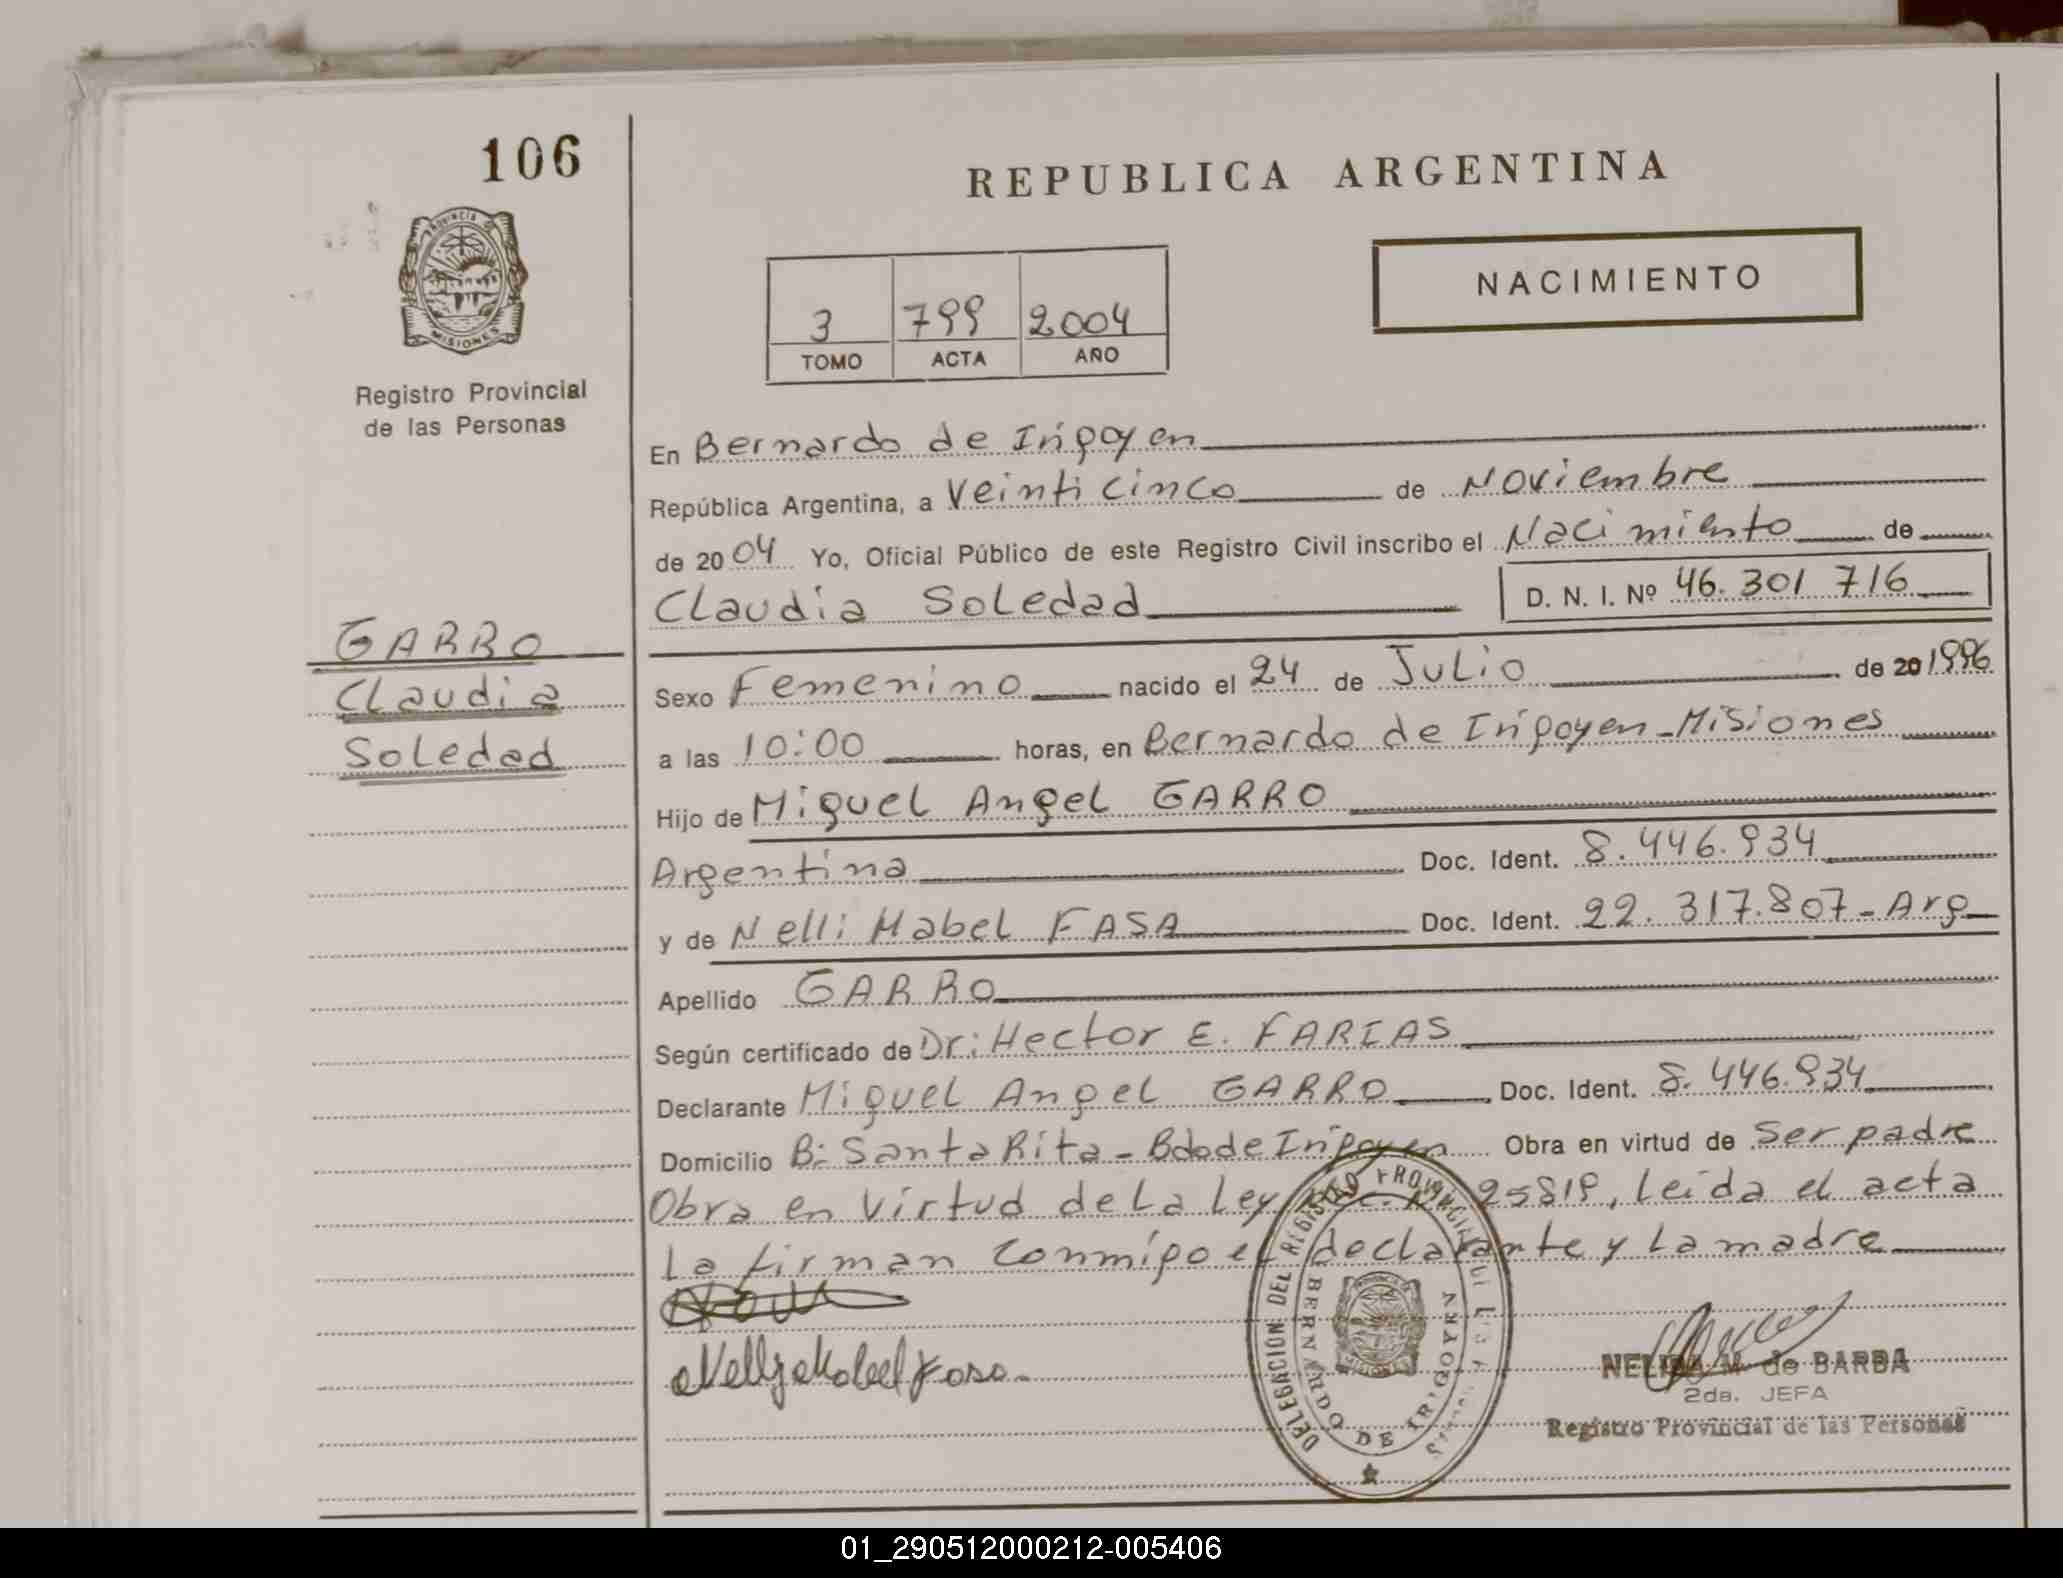 106
REPUBLICA ARGENTINA
PROVINCIA
MISIONES
NACIMIENTO
3 799 2004
TOMO ACTA AÑO
Registro Provincial
de las Personas
En Bernardo de Irigoyen
República Argentina, a Veinticinco de Noviembre
de 2004 Yo, Oficial Público de este Registro Civil inscribo el Nacimiento de
Claudia Soledad D. N. I. Nº 46.301 716
GARRO
Claudia
Soledad
Sexo Femenino nacido el 24 de Julio de 20 1996
a las 10:00 horas, en Bernardo de Irigoyen - Misiones
Hijo de Miguel Angel GARRO
Argentina Doc. Ident. 8.446.934
y de Nelli Mabel FASA Doc. Ident. 22.317.807 - Arg
Apellido GARRO
Según certificado de Dr: Hector E. FARIAS
Declarante Miguel Angel GARRO Doc. Ident. 8.446.934
Domicilio B: Santa Rita - Bdo de Irigoyen Obra en virtud de Ser padre
Obra en virtud de La Ley 25819, Leida el acta
La firman conmigo el declarante y La madre
Nelly Mabel Fasa.
DELEGACION DEL REGISTRO PROVINCIAL DE LAS
BERNARDO DE IRIGOYEN
NELIDA M. de BARBA
2da. JEFA
Registro Provincial de las Personas
01_290512000212-005406